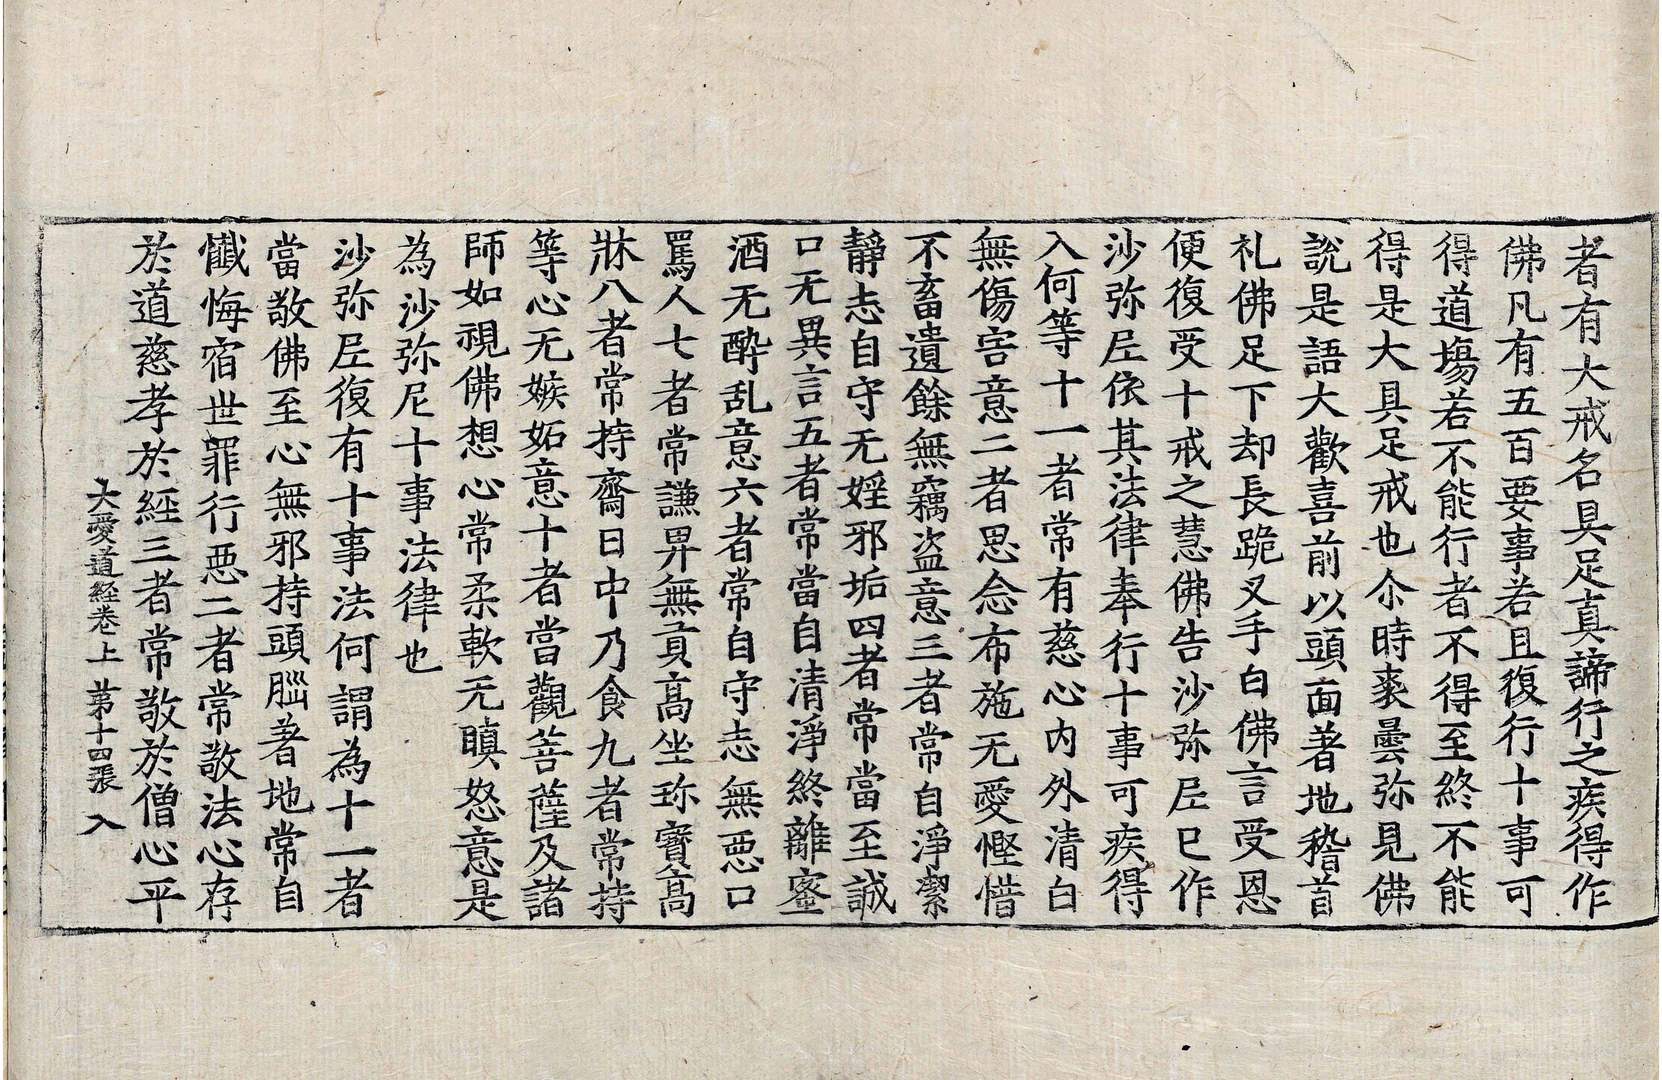 者有大戒名具足真諦行之疾得作
佛凡有五百要事若且復行十事可
得道塲若不能行者不得至終不能
得是大具足戒也尒時裘曇弥見佛
說是語大歡喜前以頭面著地稽首
礼佛足下却長跪叉手白佛言受恩
便復受十戒之慧佛告沙弥𡰱已作
沙弥𡰱依其法律奉行十事可疾得
入何等十一者常有慈心内外清白
無傷害意二者思念布施无愛慳惜
不畜遺餘無竊盗意三者常自淨潔
靜志自守无婬邪垢四者常當至誠
口无異言五者常當自清淨終離蜜
酒无醉乱意六者常自守志無惡口
罵人七者常謙卑無貢高坐珎寶高
牀八者常持齋日中乃食九者常持
等心无嫉妬意十者當觀菩薩及諸
師如視佛想心常柔軟无瞋怒意是
為沙弥尼十事法律也
沙弥𡰱復有十事法何謂為十一者
當敬佛至心無邪持頭腦著地常自
懺悔宿世罪行惡二者常敬法心存
於道慈孝於經三者常敬於僧心平
大愛道経卷上 苐十四張 入